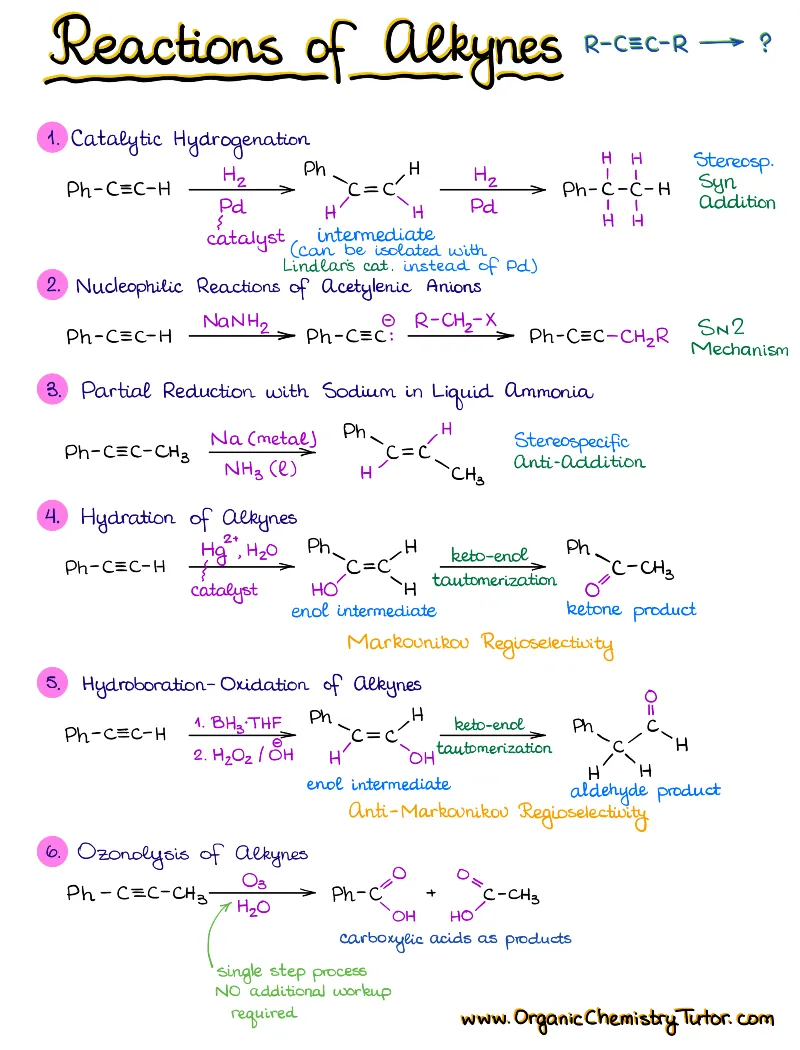 Reactions of Alkynes R-C≡C-R ⟶ ?
1. Catalytic Hydrogenation
Ph-C≡C-H H₂ Pd catalyst
Ph H C=C H H
intermediate
(can be isolated with
Lindlar's cat. instead of Pd)
H₂ Pd
H H
Ph-C-C-H
H H
Stereosp.
Syn
Addition
2. Nucleophilic Reactions of Acetylenic Anions
Ph-C≡C-H NaNH₂ Ph-C≡C:⊖ R-CH₂-X Ph-C≡C-CH₂R
SN2
Mechanism
3. Partial Reduction with Sodium in Liquid Ammonia
Ph-C≡C-CH₃ Na (metal) NH₃ (l)
Ph H C=C H CH₃
Stereospecific
Anti-Addition
4. Hydration of Alkynes
Ph-C≡C-H Hg²⁺, H₂O catalyst
Ph H C=C HO H
enol intermediate
keto-enol
tautomerization
Ph C-CH₃ O
ketone product
Markovnikov Regioselectivity
5. Hydroboration-Oxidation of Alkynes
Ph-C≡C-H
1. BH₃·THF
2. H₂O₂ / ⊖OH
Ph H C=C H OH
enol intermediate
keto-enol
tautomerization
O
Ph C H
C
H H
aldehyde product
Anti-Markovnikov Regioselectivity
6. Ozonolysis of Alkynes
Ph-C≡C-CH₃ O₃ H₂O
Ph-C O OH + O C-CH₃ HO
carboxylic acids as products
single step process
NO additional workup
required
www.OrganicChemistryTutor.com